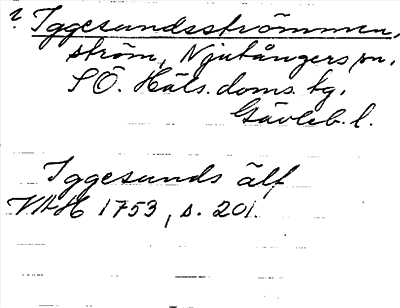 ? Iggesundsströmmen,
ström, Njutångers sn,
SÖ. Häls. doms. tg.
Gävleb. l.
Iggesunds älf
VAH 1753, s. 201.